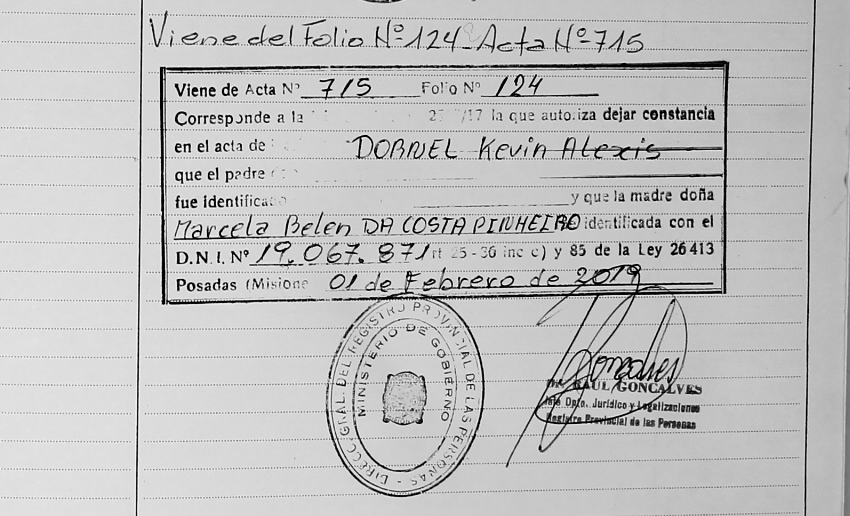 Viene del Folio Nº 124 - Acta Nº 715
Viene de Acta Nº 715 Folio Nº 124
Corresponde a la /17 la que autoriza dejar constancia
en el acta de DORNEL Kevin Alexis
que el padre
fue identificado y que la madre doña
Marcela Belen DA COSTA PINHEIRO identificada con el
D.N.I. Nº 19.067.871 rt 25 - 36 inc c) y 85 de la Ley 26413
Posadas (Misione 01 de Febrero de 2019
DIREC. GRAL. DEL REGISTRO PROVINCIAL DE LAS PERSONAS
MINISTERIO DE GOBIERNO
Goncalves
RAUL GONCALVES
Jefe Dpto. Jurídico y Legalizaciones
Registro Provincial de las Personas